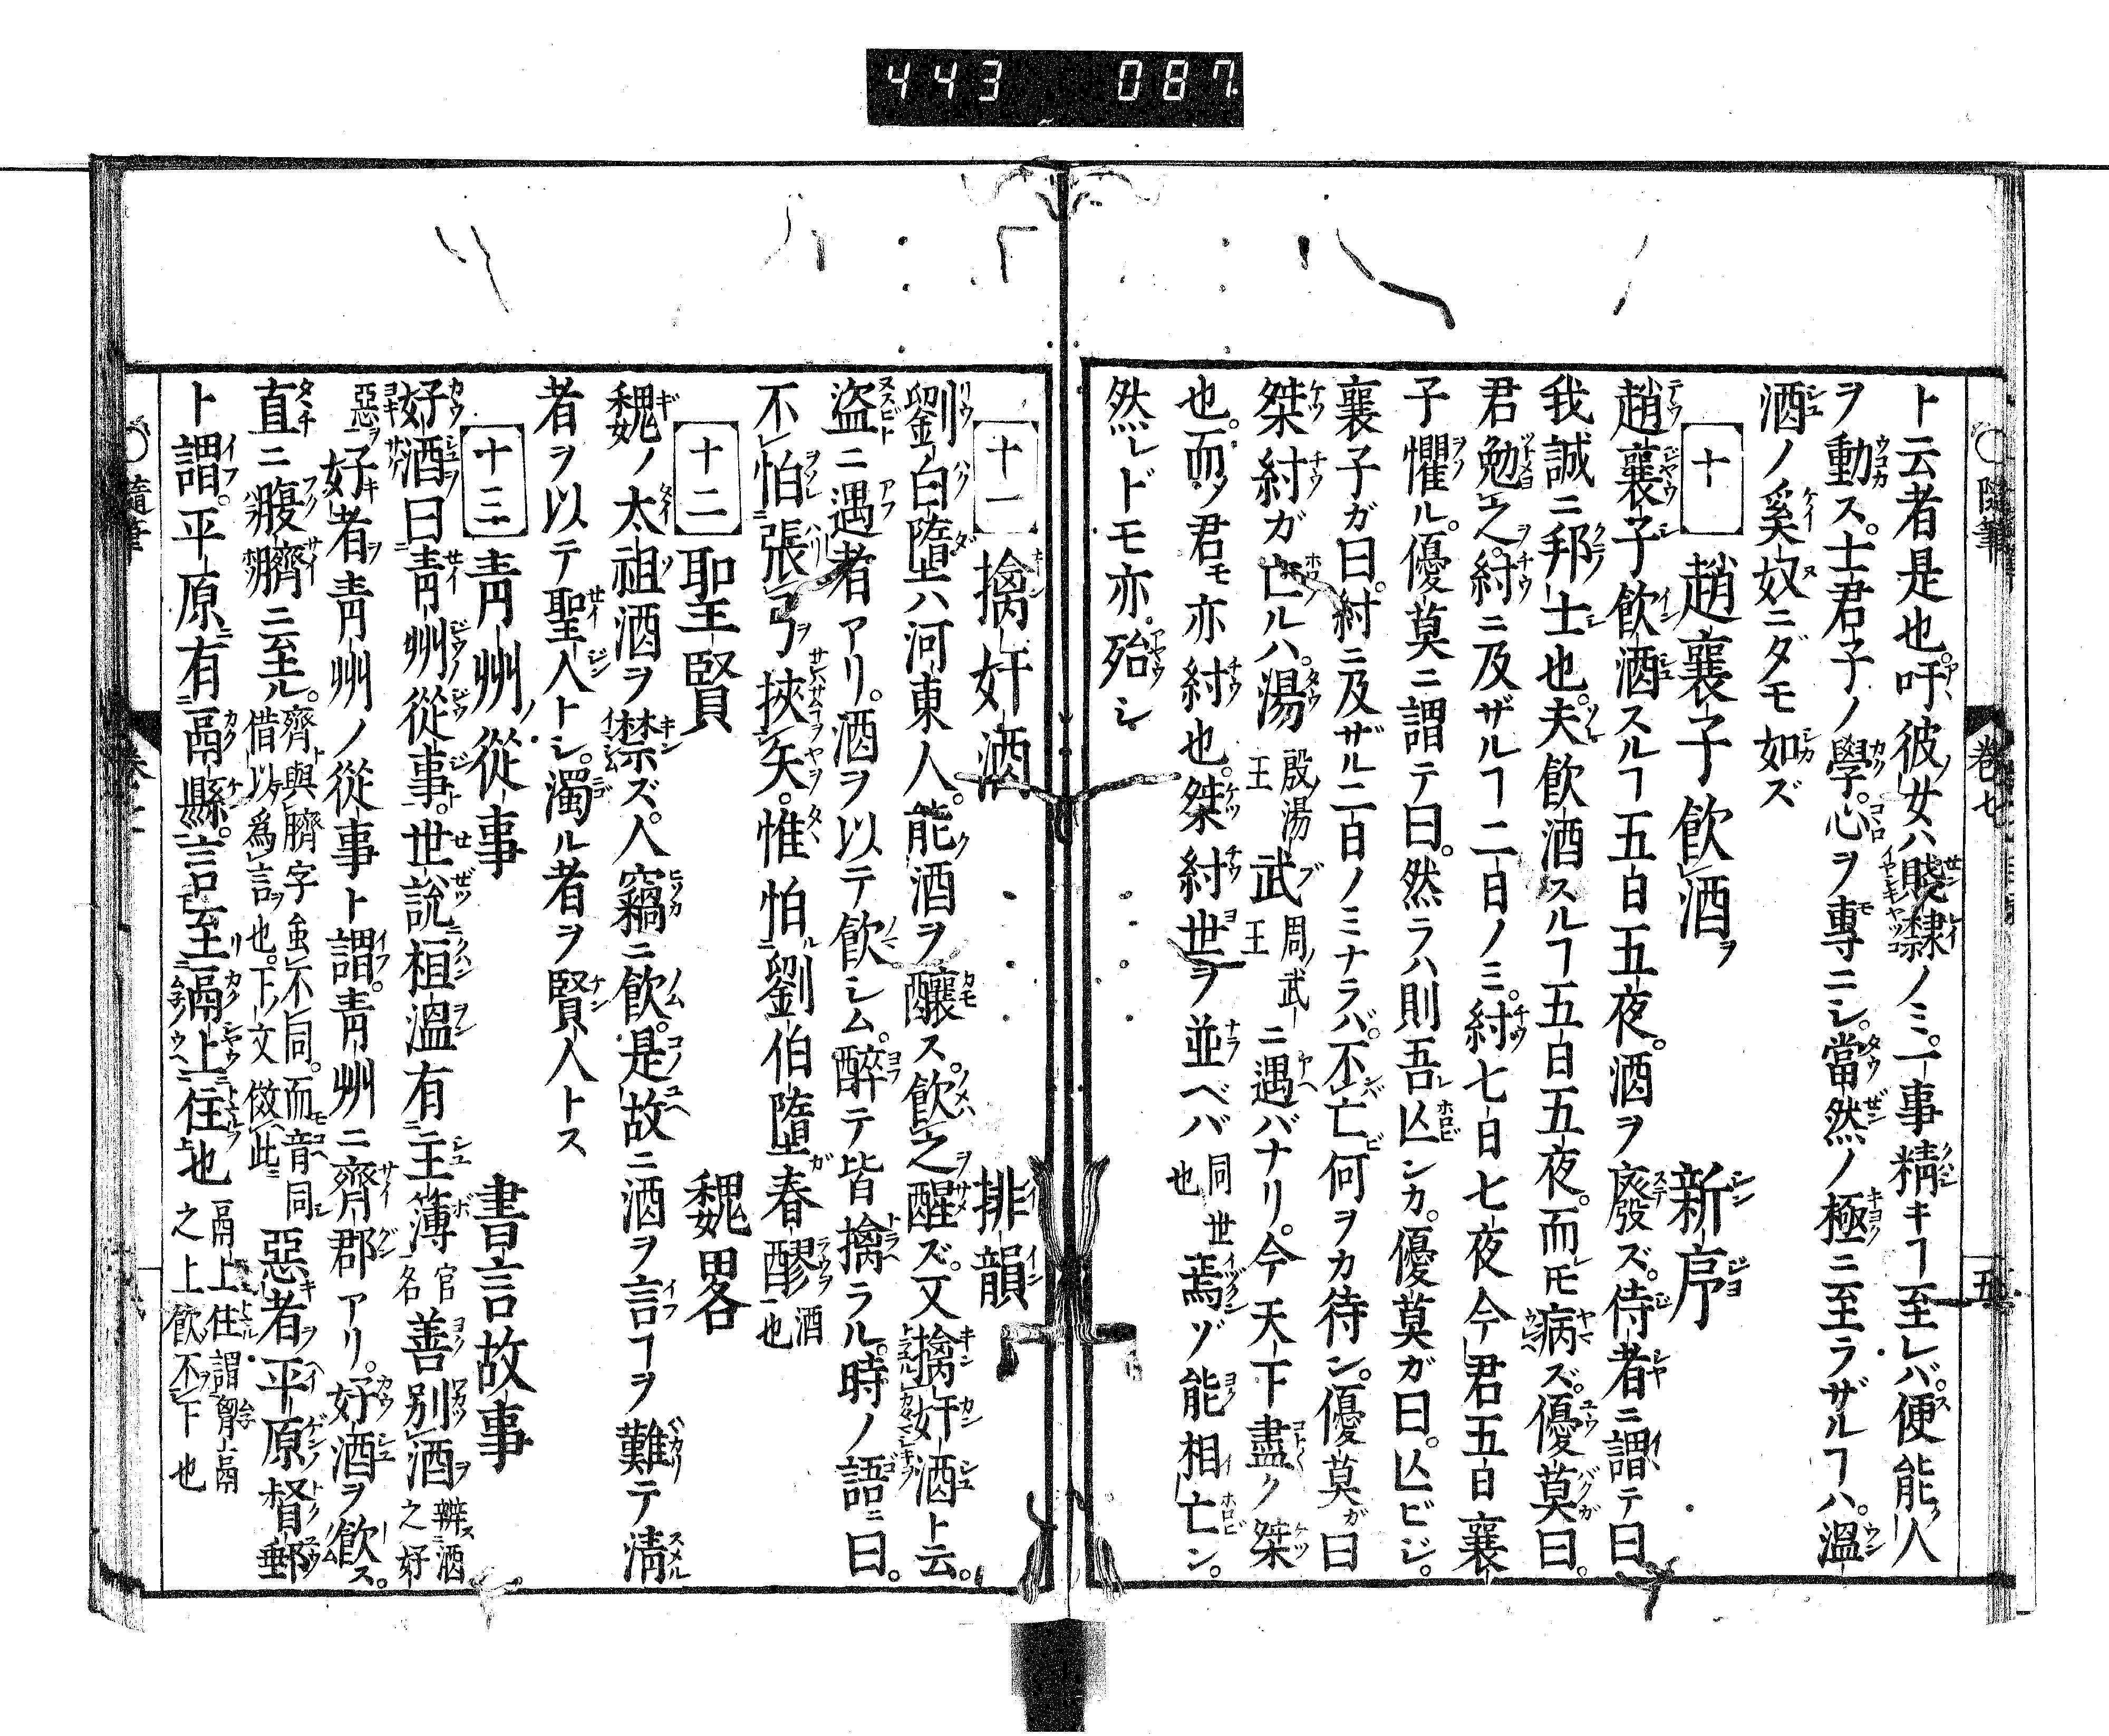 443 087
隨筆 卷七 五
ト云者是也。吁彼ノ女ハ賤隸ノミ。一事精キヿ至レバ。便能ク人
ヲ動ス。士君子ノ學。心ヲ專ニシ。當然ノ極ニ至ラザルヿハ。溫
酒ノ奚奴ニダモ如ズ
十 趙襄子飮酒ヲ 新序
趙襄子飮酒スルヿ五日五夜。酒ヲ廢ズ。侍者ニ謂テ曰
我誠ニ邦士也。夫飮酒スルヿ五日五夜。而レ𪜈病ズ。優莫曰。
君勉之。紂ニ及ザルヿ二日ノミ。紂七日七夜今君五日襄
子懼ル。優莫ニ謂テ曰。然ラハ則吾亾ンカ。優莫ガ曰。亾ビジ。
襄子ガ曰。紂ニ及ザル二日ノミナラバ。不亡何ヲカ待ン。優莫ガ曰
桀紂ガ亡ルハ。湯殷湯王武周ノ武王ニ遇バナリ。今天下盡ク桀
也。而乄君モ亦紂也。桀紂世ヲ並ベバ同世也焉ゾ能相亡ン。
然レドモ亦。殆シ
十一 擒奸酒 排韻
劉白隋ハ河東人。能酒ヲ釀ス。飮之醒ズ。又擒奸酒ト云。
盜ニ遇者アリ。酒ヲ以テ飮シム。醉テ皆擒ラル。時ノ語ニ曰。
不怕張弓挾矢。惟怕劉伯墮春醪酒也
十二 聖賢 魏畧
魏ノ太祖酒ヲ禁ズ。人竊ニ飮。是故ニ酒ヲ言ヿヲ難テ淸
者ヲ以テ聖人トシ。濁ル者ヲ賢人トス
十三 靑州ノ從事 書言故事
好酒曰靑州從事。世說桓溫有主簿官名善別酒辨酒之好
惡ヲ好者ヲ靑州ノ從事ト謂。靑州ニ齊郡アリ。好酒ヲ飮ス。
直ニ腹臍ニ至ル。齊與臍字虽不同。而音同借以爲言也。下文倣此惡者平原督郵
ト謂。平原有鬲縣。言至鬲上住也鬲上住謂胷鬲之上飮不下也